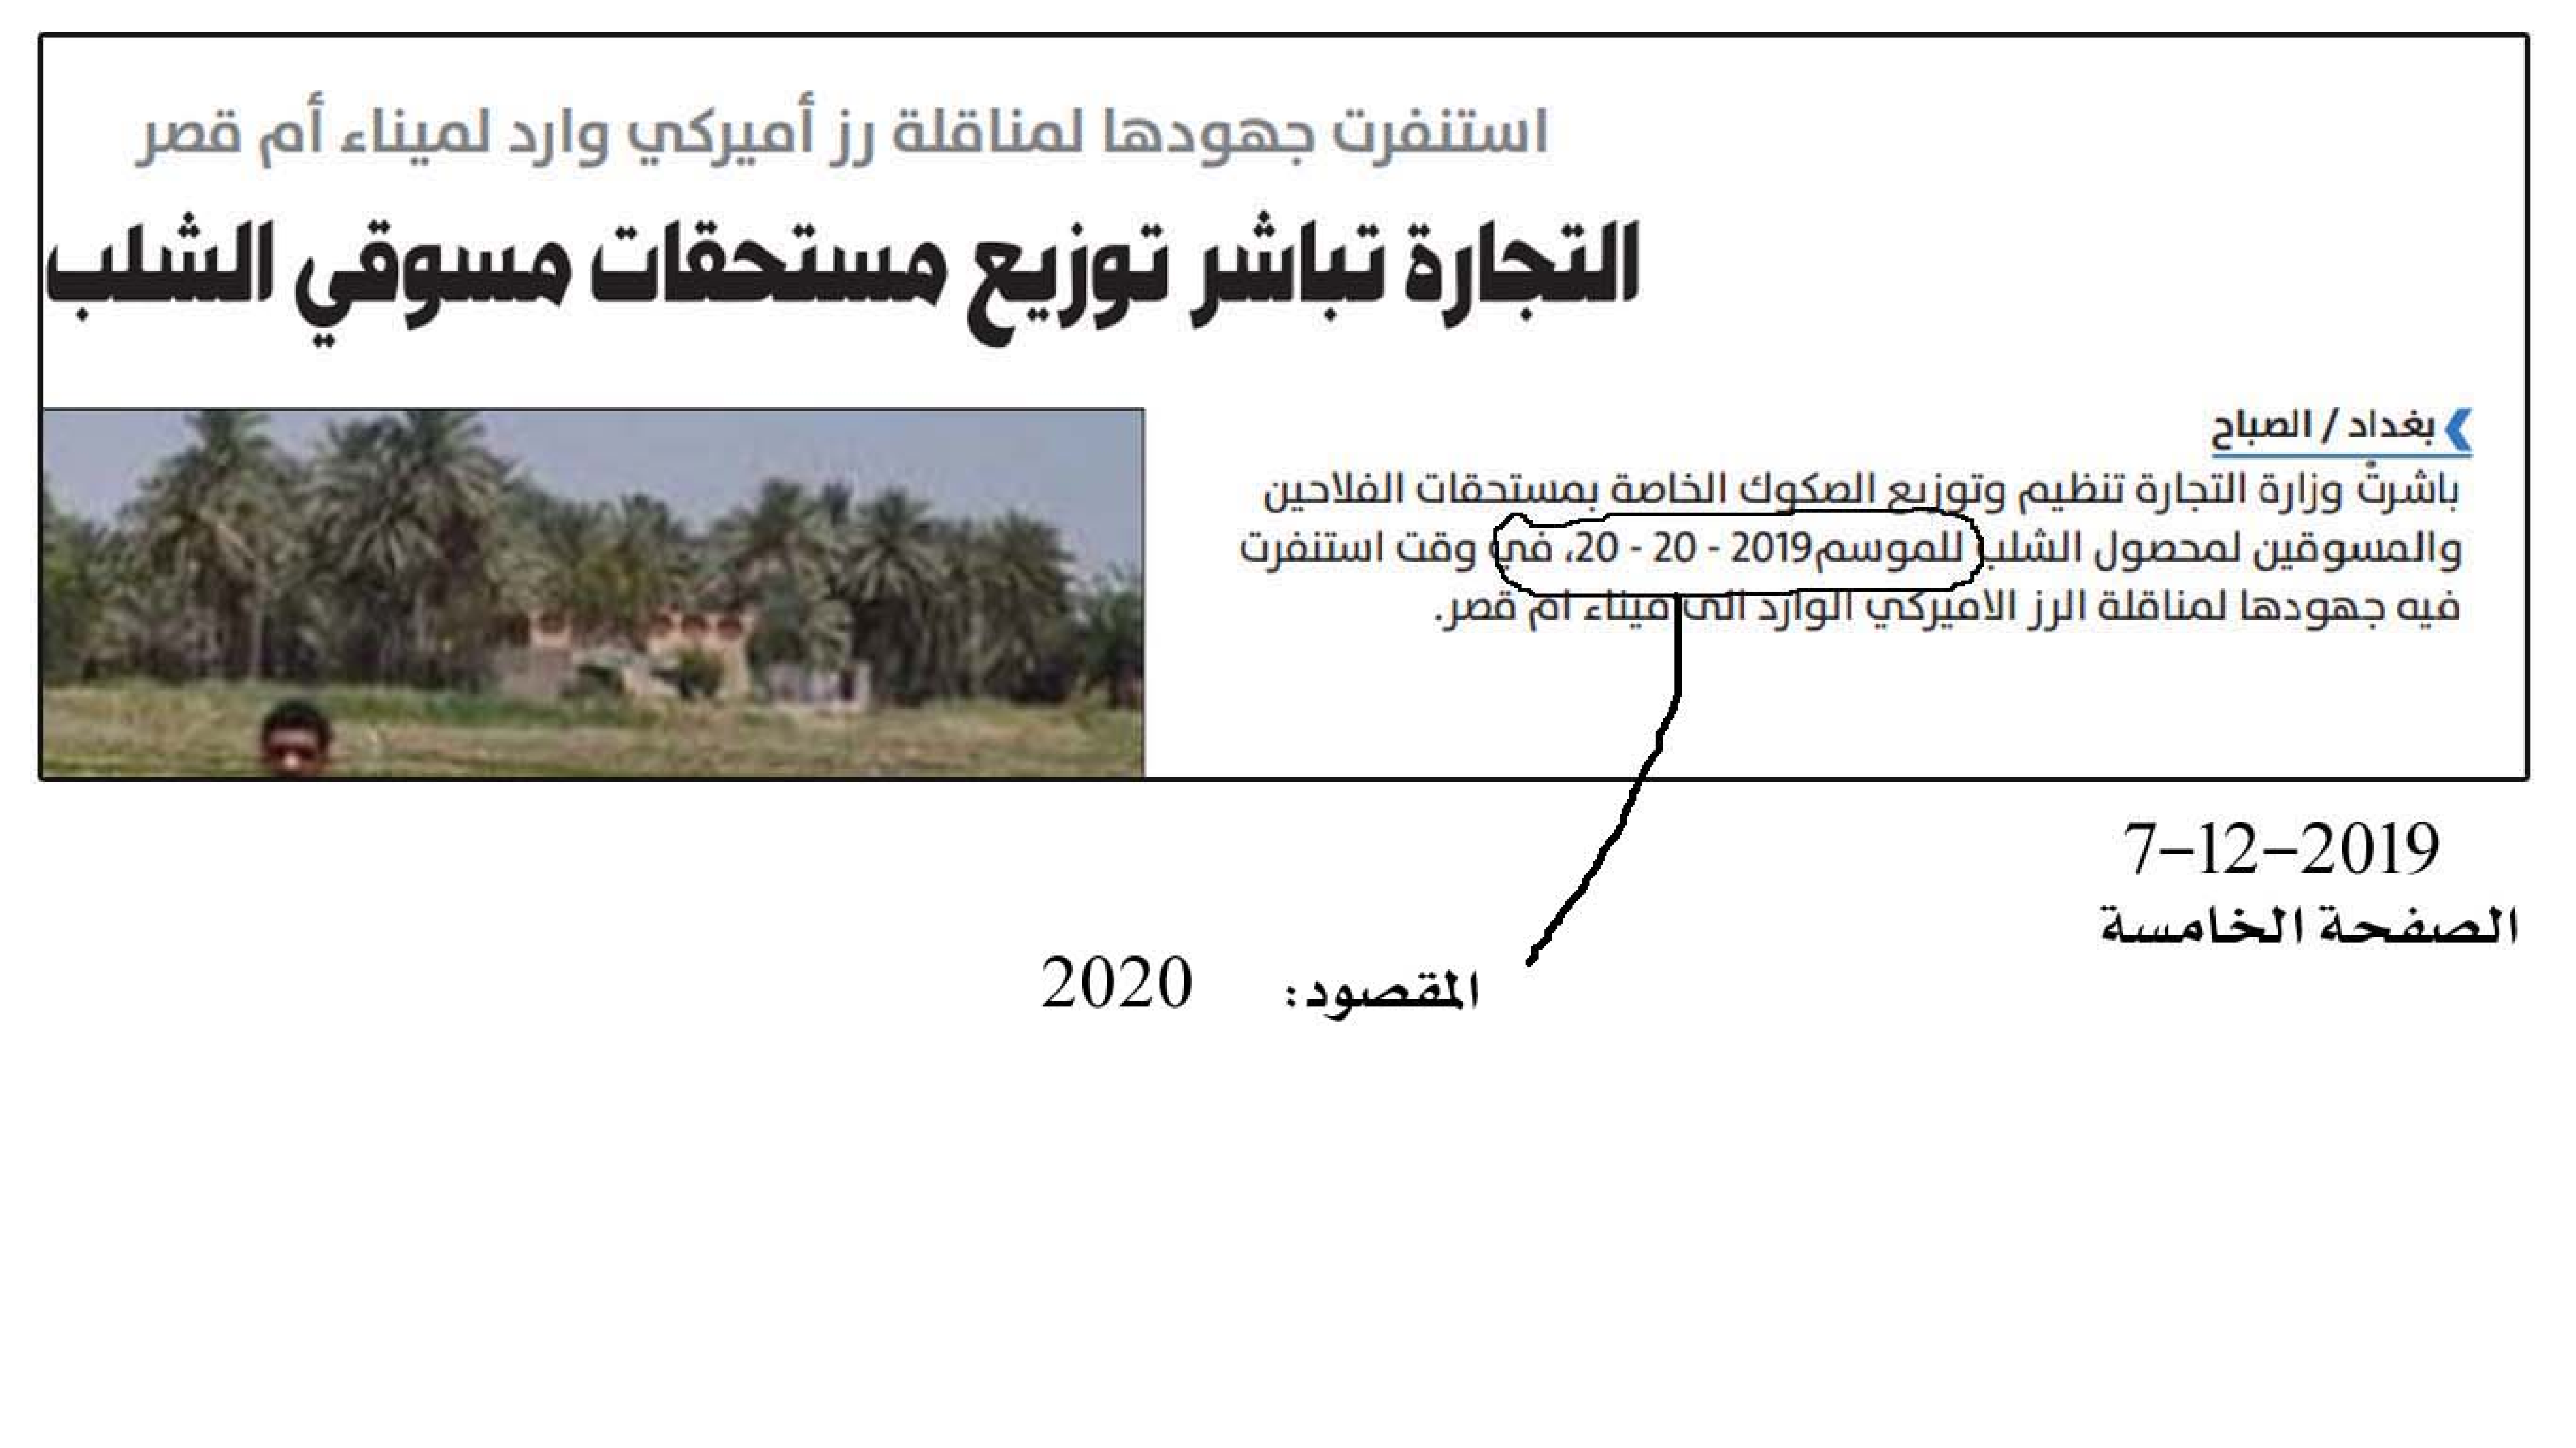 استنفرت جهودها لمناقلة رز أميركي وارد لميناء أم قصر
التجارة تباشر توزيع مستحقات مسوقي الشلب
بغداد / الصباح
باشرتْ وزارة التجارة تنظيم وتوزيع الصكوك الخاصة بمستحقات الفلاحين
والمسوقين لمحصول الشلب للموسم2019 - 20 - 20، في وقت استنفرت
فيه جهودها لمناقلة الرز الاميركي الوارد الى ميناء ام قصر.
7-12-2019
الصفحة الخامسة
المقصود: 2020